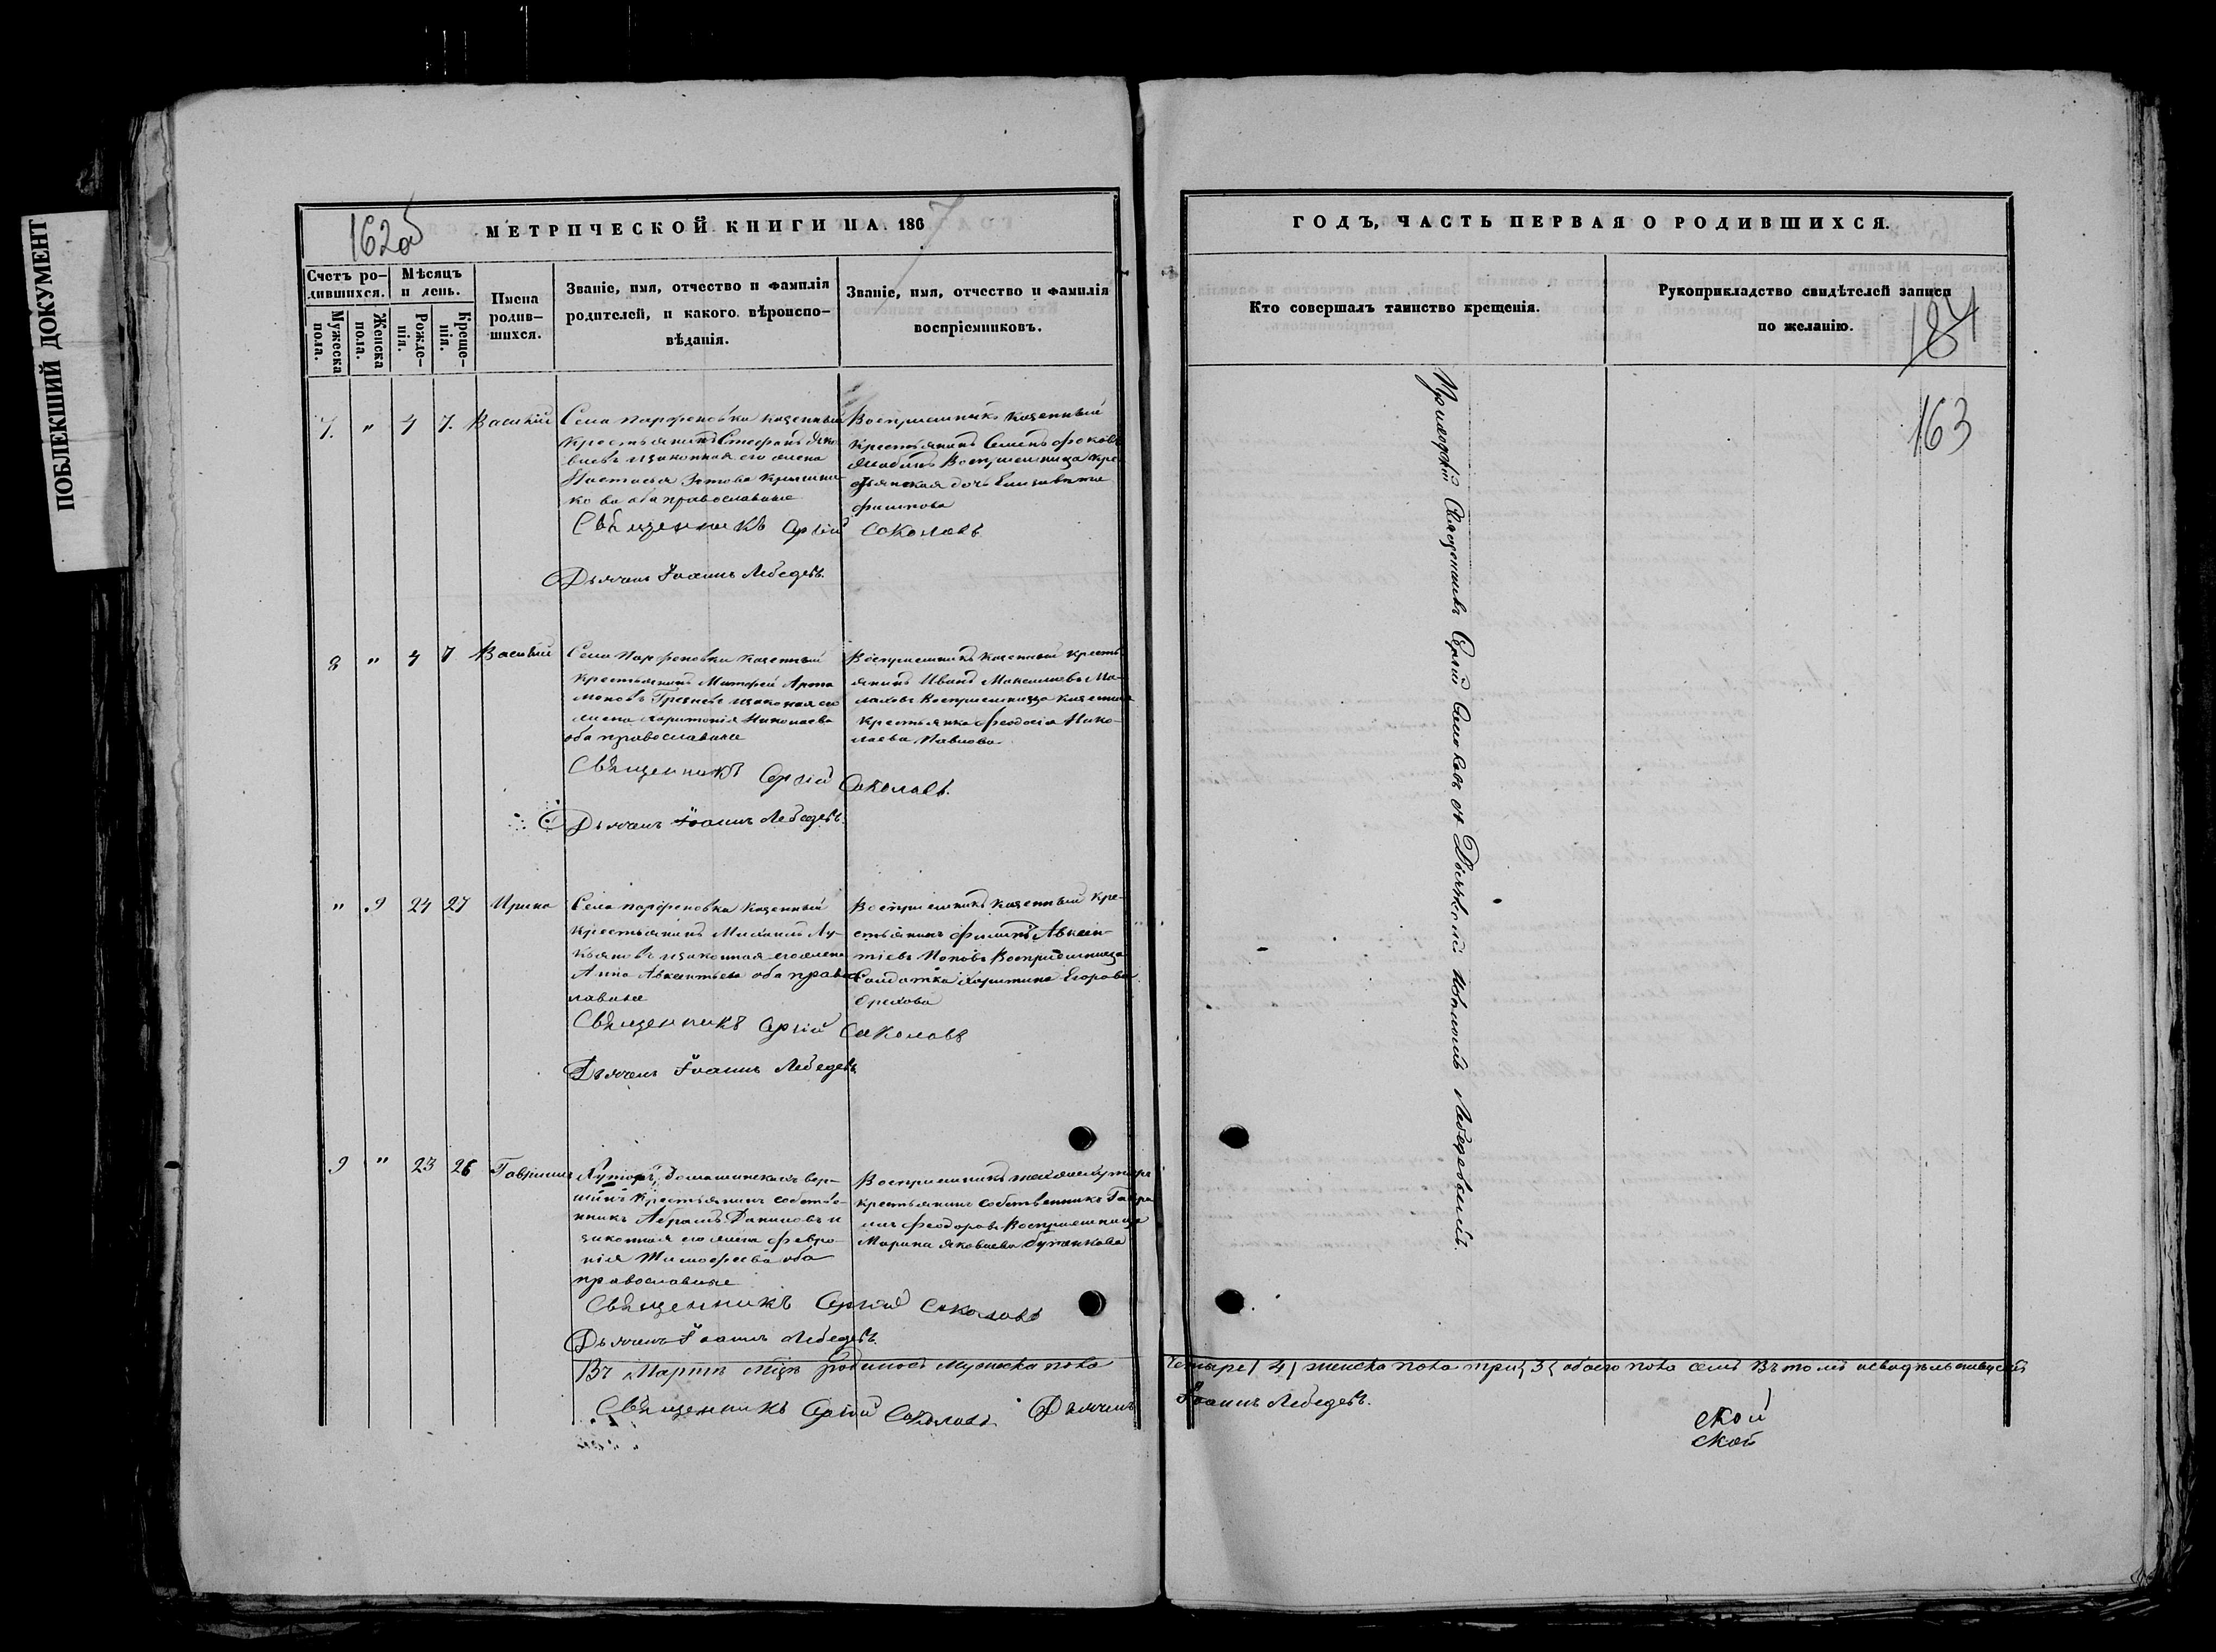 ПОБЛЕКШИЙ ДОКУМЕНТ
162об
МЕТРИЧЕСКОЙ КНИГИ НА 1867
Счетъ родившихся.
Мужеска пола.
Женска пола.
Мѣсяцъ и день.
Рожденія.
Крещенія.
Имена родившихся.
Званіе, имя, отчество и фамилія родителей, и какого вѣроисповѣданія.
Званіе, имя, отчество и фамилія воспріемниковъ.
7. " 4 7. Василій
Села Парфеновки казенный
крестьянинъ Стефанъ Яко
влевъ и законная его жена
Настасья
оба православные
Воспріемникъ казенный
крестьянинъ Семенъ
Воспріемница кре
стьянская дочь Елизавета
Филипова
Священникъ Сергій Соколовъ
Дьячекъ Іоаннъ Лебедевъ.
8 " 4 7 Василій
Села Парфеновки казенный
крестьянинъ Матфей Арта
моновъ и законная его
жена Харитонія Николаева
оба православные
Воспріемникъ казенный кресть
янинъ Иванъ Максимовъ Ма-
лаховъ Воспріемница казенная
крестьянка Феодосія Нико-
лаева Павлова
Священникъ Сергій Соколовъ.
Дьячекъ Іоаннъ Лебедевъ.
" 9 24 27 Ирина
Села Парфеновки казенный
крестьянинъ Михаилъ Лу-
кьяновъ и законная его жена
Анна Авксентьева оба правос
лавные
Воспріемникъ казенный кре-
стьянинъ Филипъ Авксен-
тіевъ Поповъ Воспріемница
Солдатка Харитина Егорова
Орехова
Священникъ Сергій Соколовъ
Дьячекъ Іоаннъ Лебедевъ
9 " 23 26 Гавріилъ
Хуторъ вер-
шинъ крестьянинъ собстве-
нникъ Абрамъ Даниловъ и
законная его жена Февро-
нія Тимофеева оба
православные
Воспріемникъ тогоже хутора
крестьянинъ собственникъ Гаври
илъ Феодоровъ Воспріемница
Марина Яковлева
Священникъ Сергій Соколовъ
Дьячекъ Іоаннъ Лебедевъ.
Въ Мартѣ мцѣ родилось мужеска пола
Священникъ Сергій Соколовъ Дьячекъ
ГОДЪ, ЧАСТЬ ПЕРВАЯ О РОДИВШИХСЯ.
Кто совершалъ таинство крещенія.
Рукоприкладство свидѣтелей записи по желанію.
184
163
Приходскій Священникъ Сергій Соколовъ съ Дьячкомъ Іоанномъ Лебедевымъ.
четыре (4) женска пола три (3) обоего пола семь Въ томъ и свидѣтельствуемъ
Іоаннъ Лебедевъ.
ской
ской